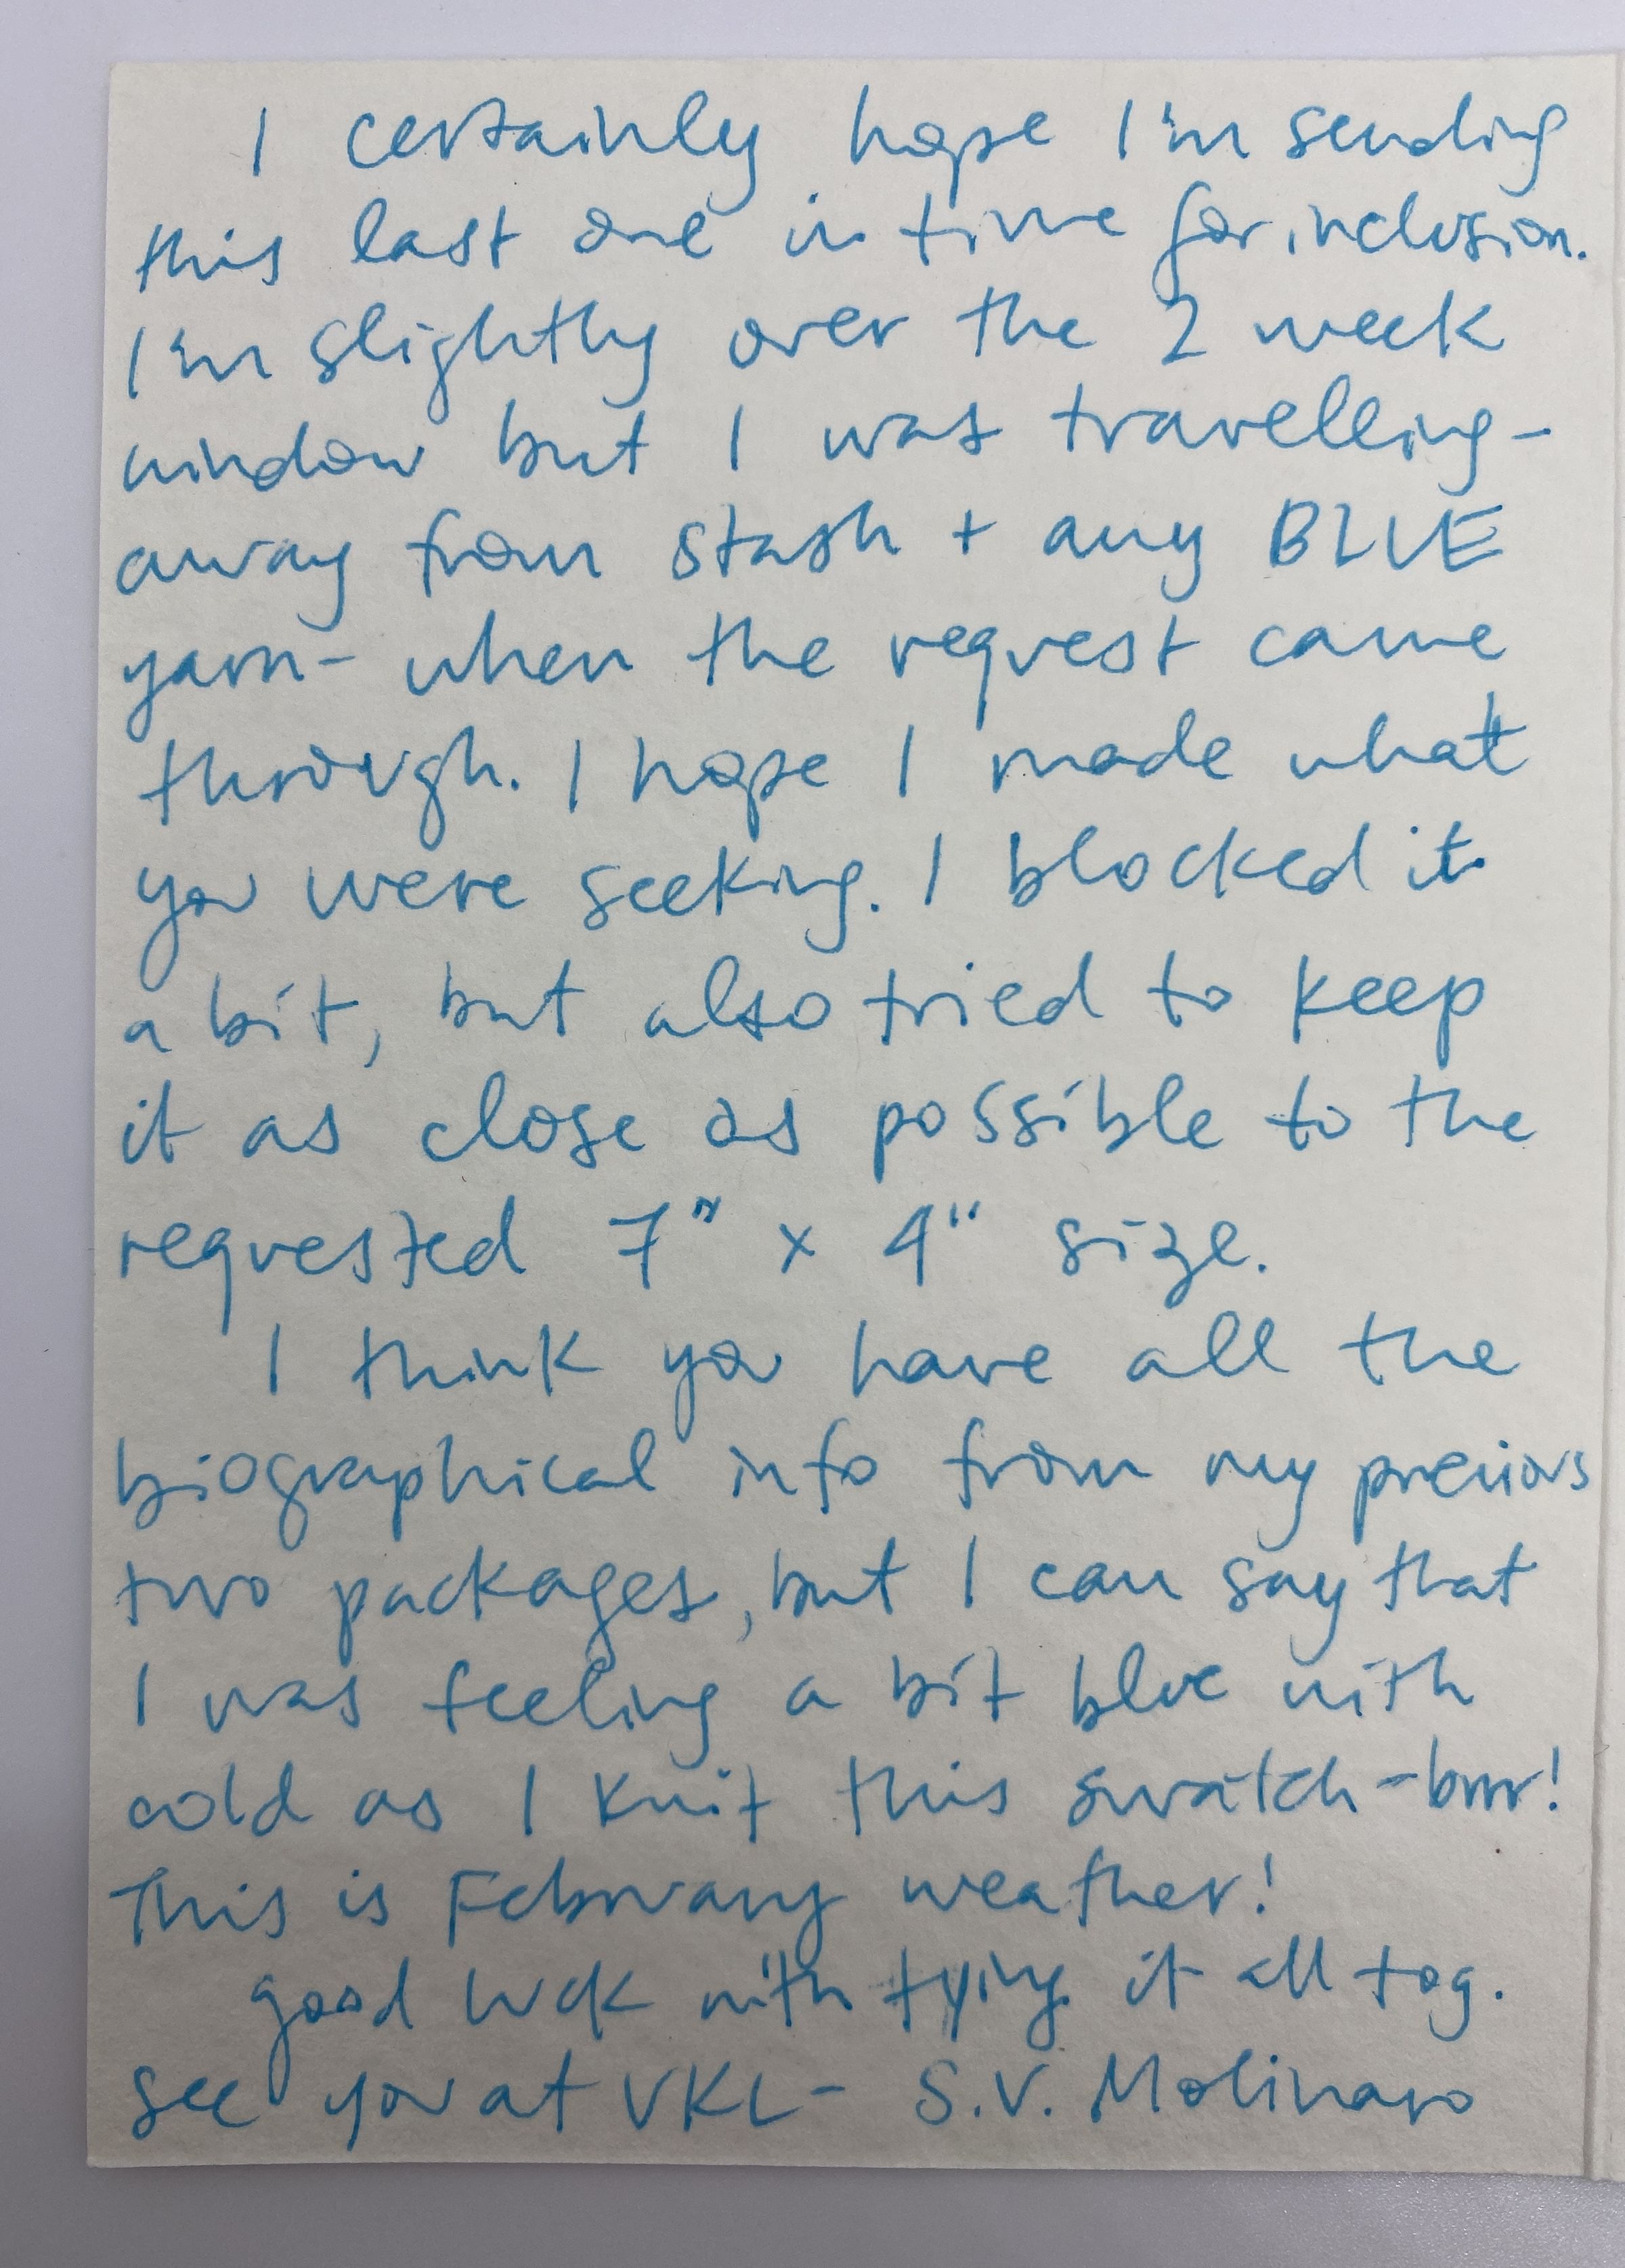 I certainly hope I'm sending
this last one in time for inclusion.
I'm slightly over the 2 week
window but I was travelling -
away from stash + any BLUE
yarn - when the request came
through. I hope I made what
you were seeking. I blocked it
a bit, but also tried to keep
it as close as possible to the
requested 7" x 4" size.
I think you have all the
biographical info from my previous
two packages, but I can say that
I was feeling a bit blue with
cold as I knit this swatch - brrr!
This is February weather!
good luck with tying it all tog.
see you at VKL - S.V. Molinaro